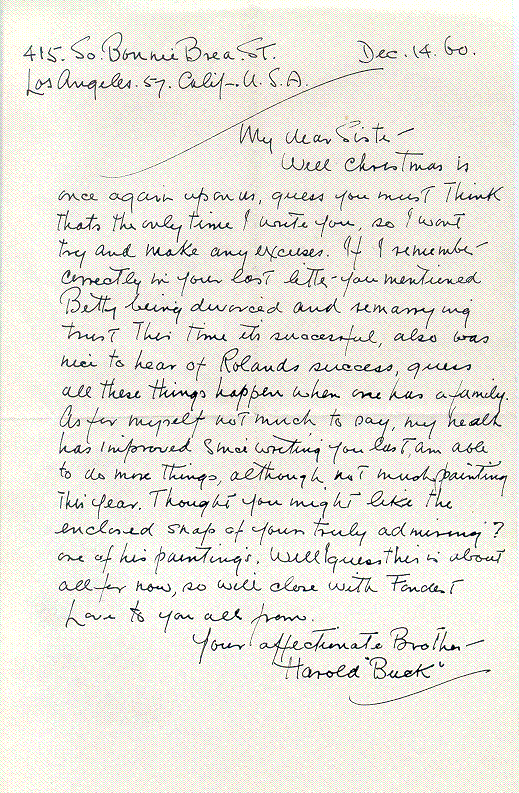 415. So. Bonnie Brea. St. Dec. 14. 60.
Los Angeles. 57. Calif. U. S. A.
My dear Sister
Well Christmas is
once again upon us, guess you must Think
thats the only time I write you, so I wont
try and make any excuses. If I remember
correctly in your last letter you mentioned
Betty being divorced and remarrying
trust This time its successful, also was
nice to hear of Rolands success, guess
all these things happen when one has a family.
As for myself not much to say, my health
has improved since writing you last, am able
to do more things, although, not much painting
This year. Thought you might like the
enclosed snap of yours truly admiring?
one of his paintings. Well I guess this is about
all for now, so will close with Fondest
Love to you all from.
Your affectionate Brother
Harold "Buck"